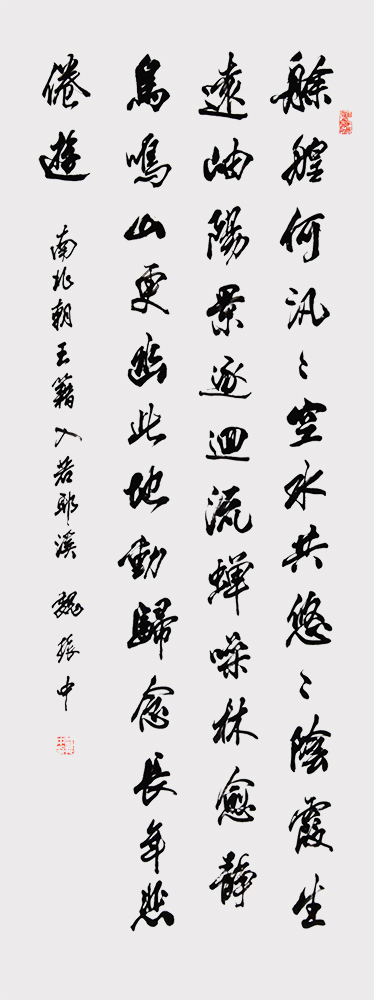 艅艎何汎〻空水共悠〻陰霞生
遠岫陽景逐迴流蟬噪林愈靜
鳥鳴山更幽此地動歸念長年悲
倦遊
南北朝王籍入若耶溪 魏張中